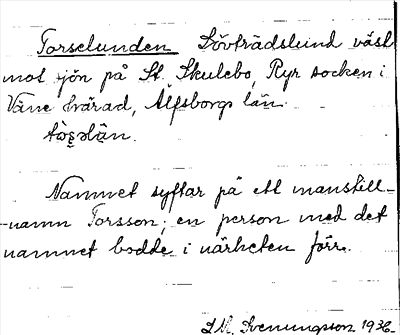 Torselunden Lövträdslund väst
mot sjön på St. Skulebo, Ryr socken i
Väne härad, Älfsborgs län.
Namnet syftar på ett manstill-
-namn Torsson; en person med det
namnet bodde i närheten förr.
Svenungsson 1936.